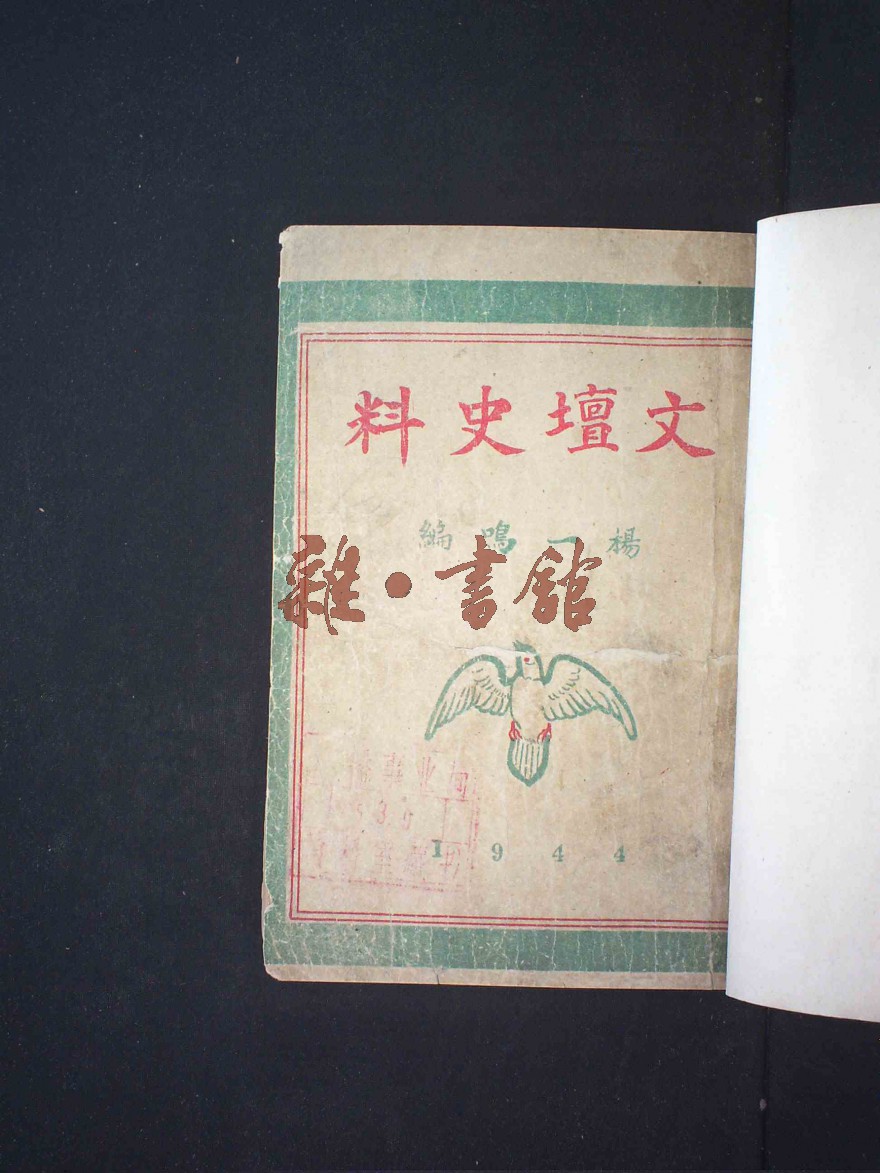 文壇史料
楊一鳴編
雜·書館
1944